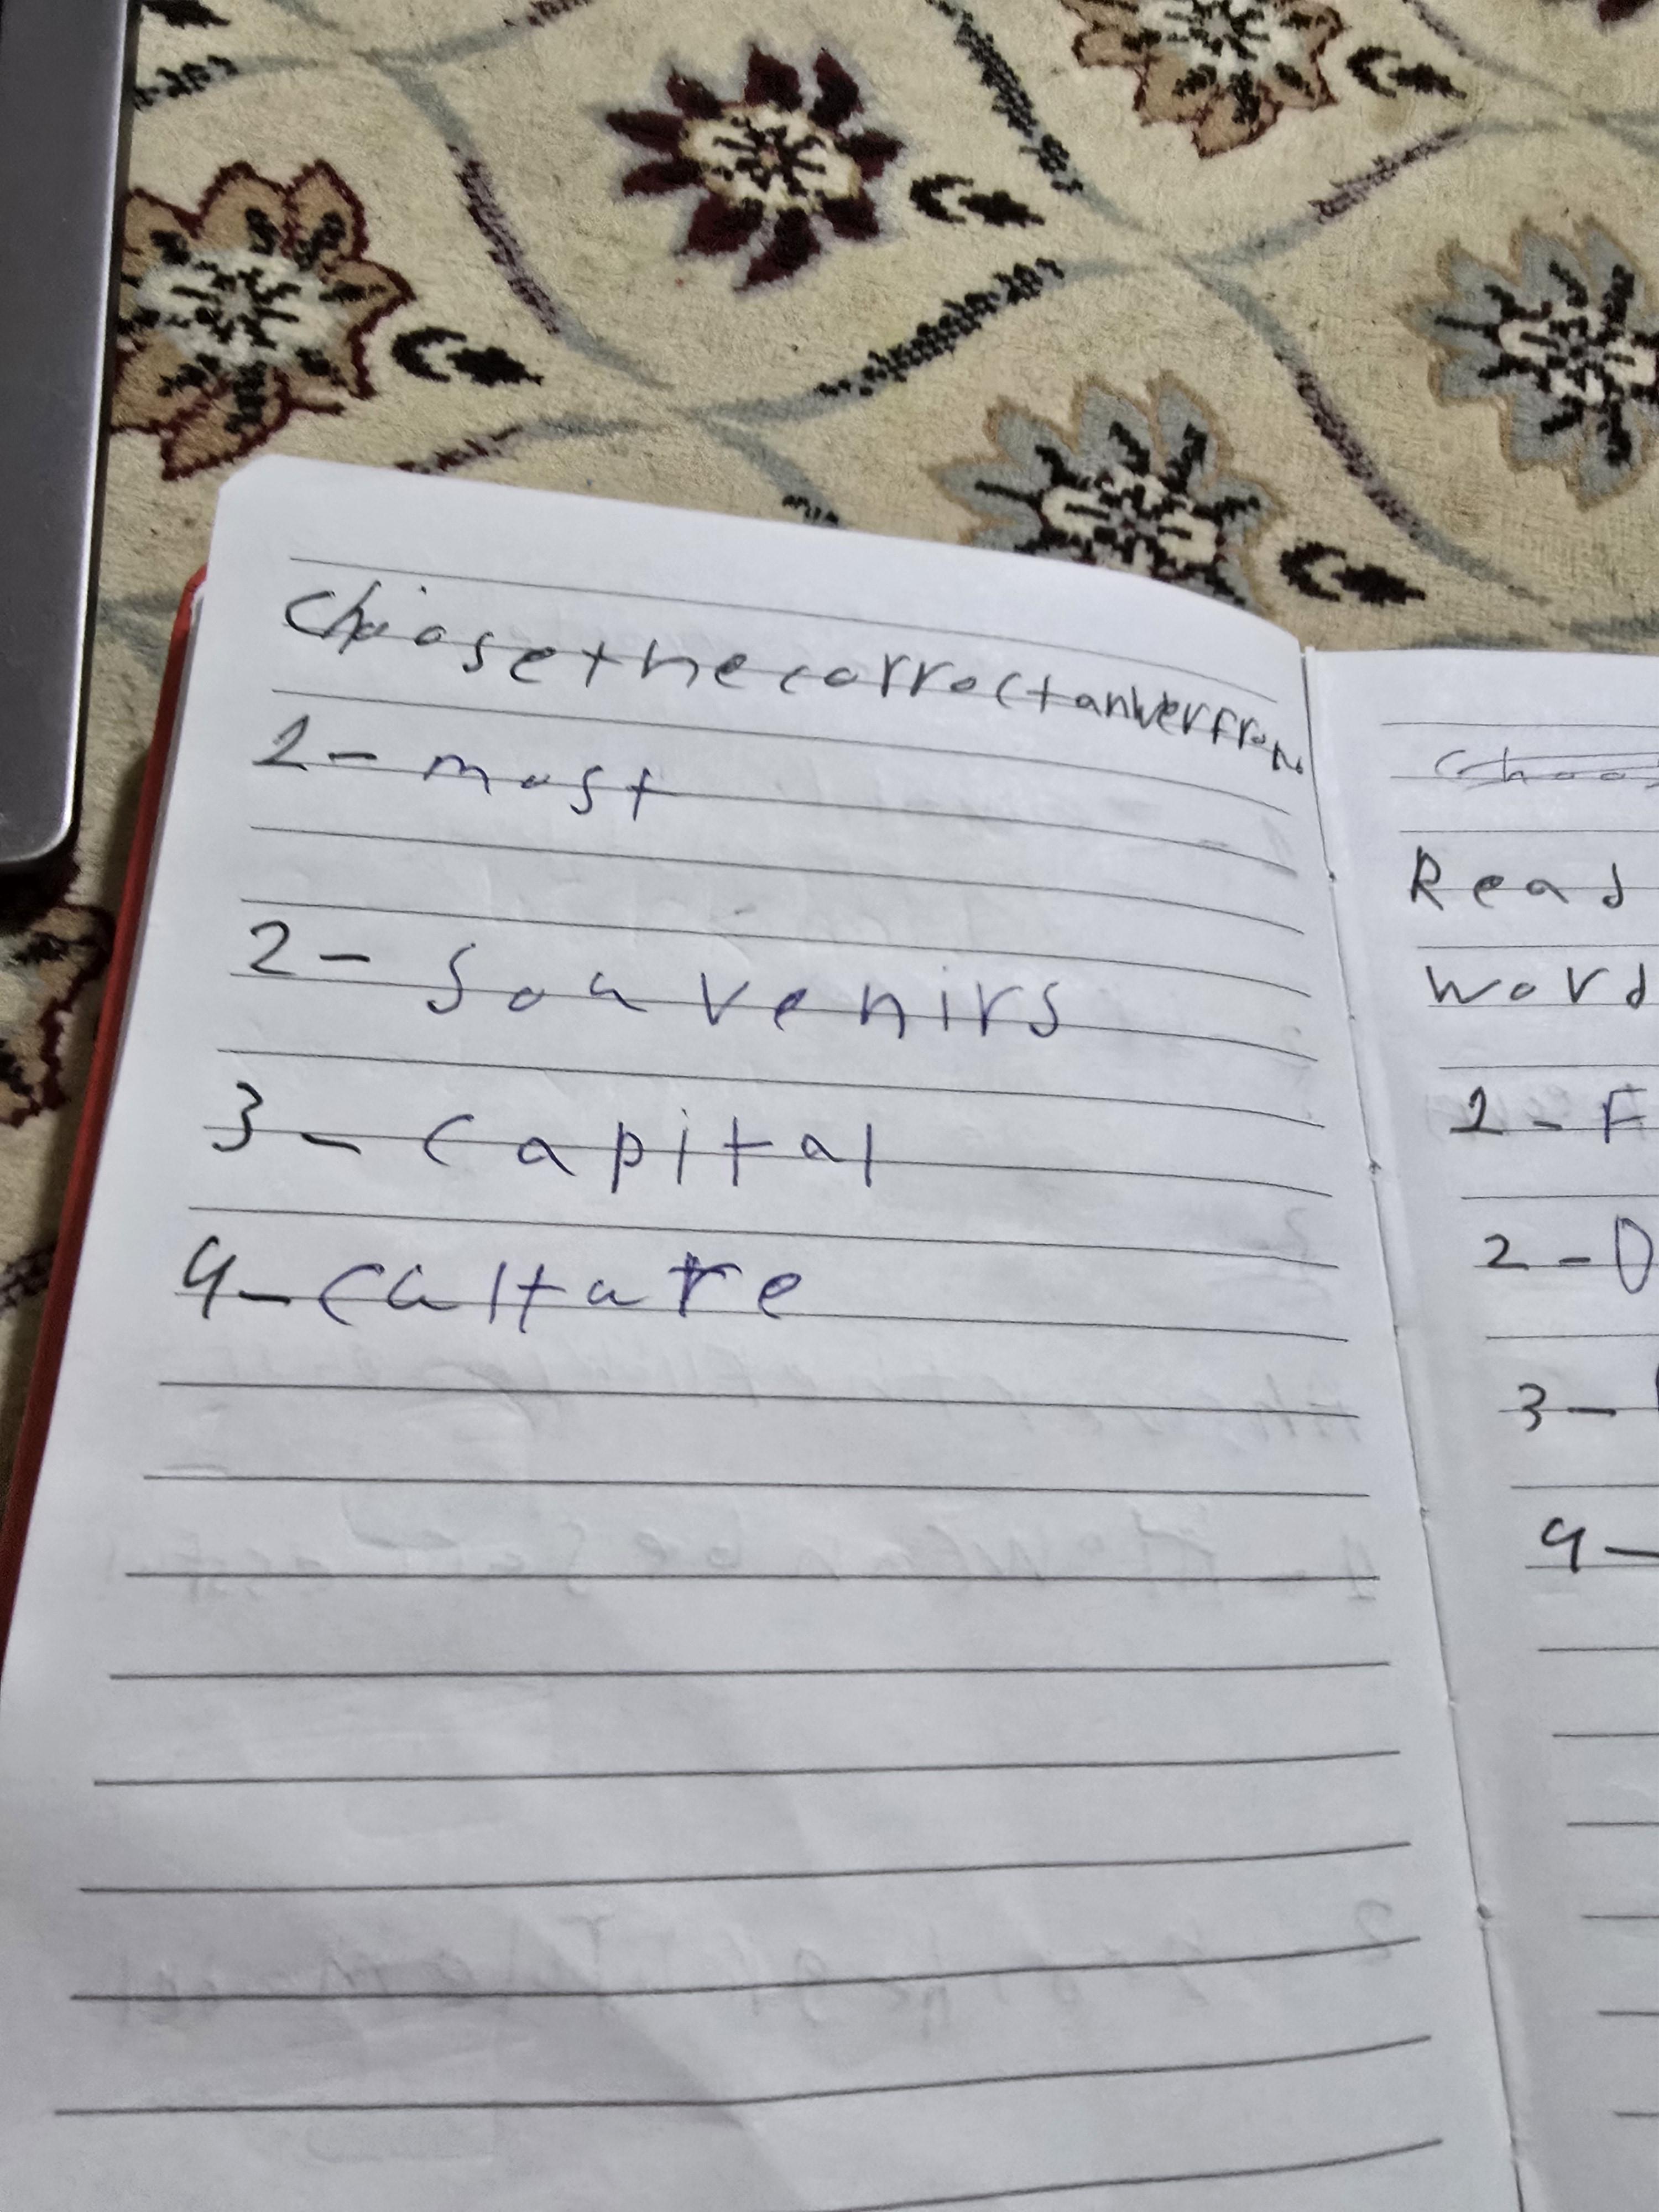 choose the corroct anwer from
1- most
2- Souvenirs
3- capital
4- culture
Read
word
1- F
2- D
3-
4-